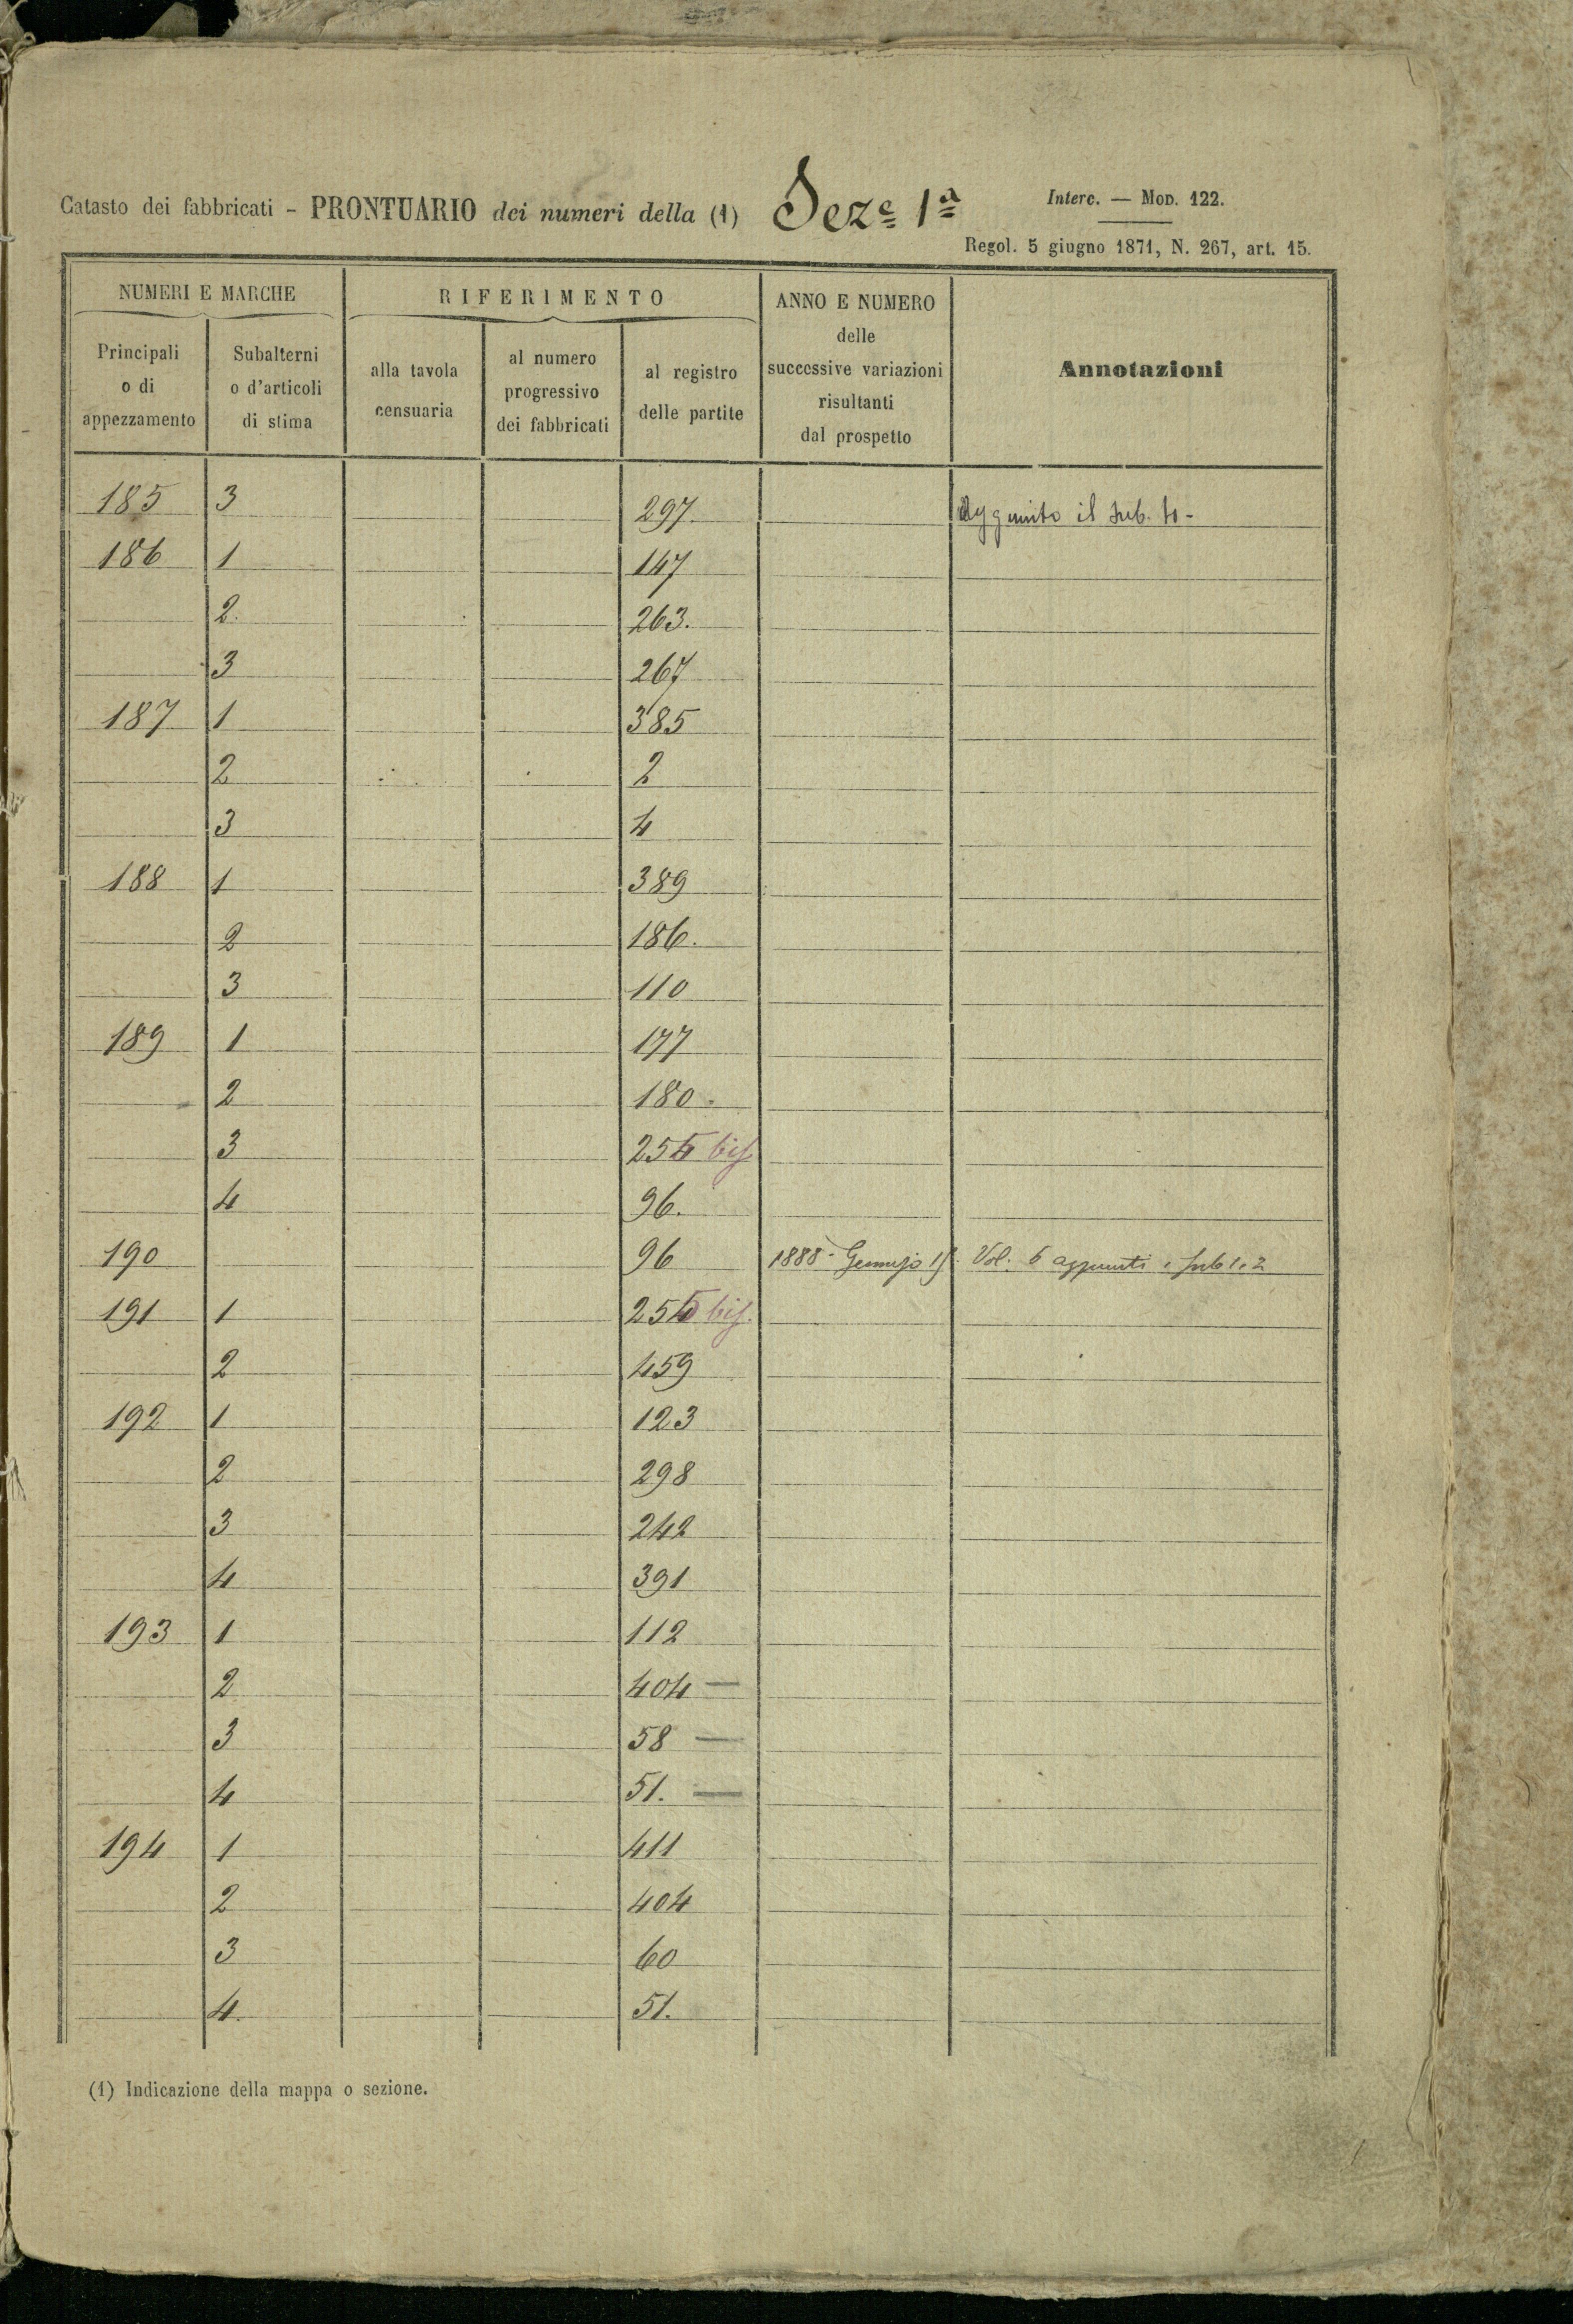 Catasto dei fabbricati - PRONTUARIO dei numeri della (1) Sez.e 1a
Interc. — Mod. 122.
Regol. 5 giugno 1871, N. 267, art. 15.
NUMERI E MARCHE
RIFERIMENTO
ANNO E NUMERO delle successive variazioni risultanti dal prospetto
Annotazioni
Principali o di appezzamento
Subalterni o d'articoli di stima
alla tavola censuaria
al numero progressivo dei fabbricati
al registro delle partite
185 3 297. Aggiunto il sub. 4-
186 1 147
2. 263.
3 267
187 1 385
2 2
3 4
188 1 389
2 186.
3 110
189 1 177
2 180.
3 254 bis
4 96.
190 96 1888 - Gennajo Vol. 6 aggiunti i sub 1. 2
191 1 254 bis.
2 459
192 1 123
2 298
3 242
4 391
193 1 112
2 404 —
3 58 —
4 51. —
194 1 411
2 404
3 60
4. 51.
(1) Indicazione della mappa o sezione.